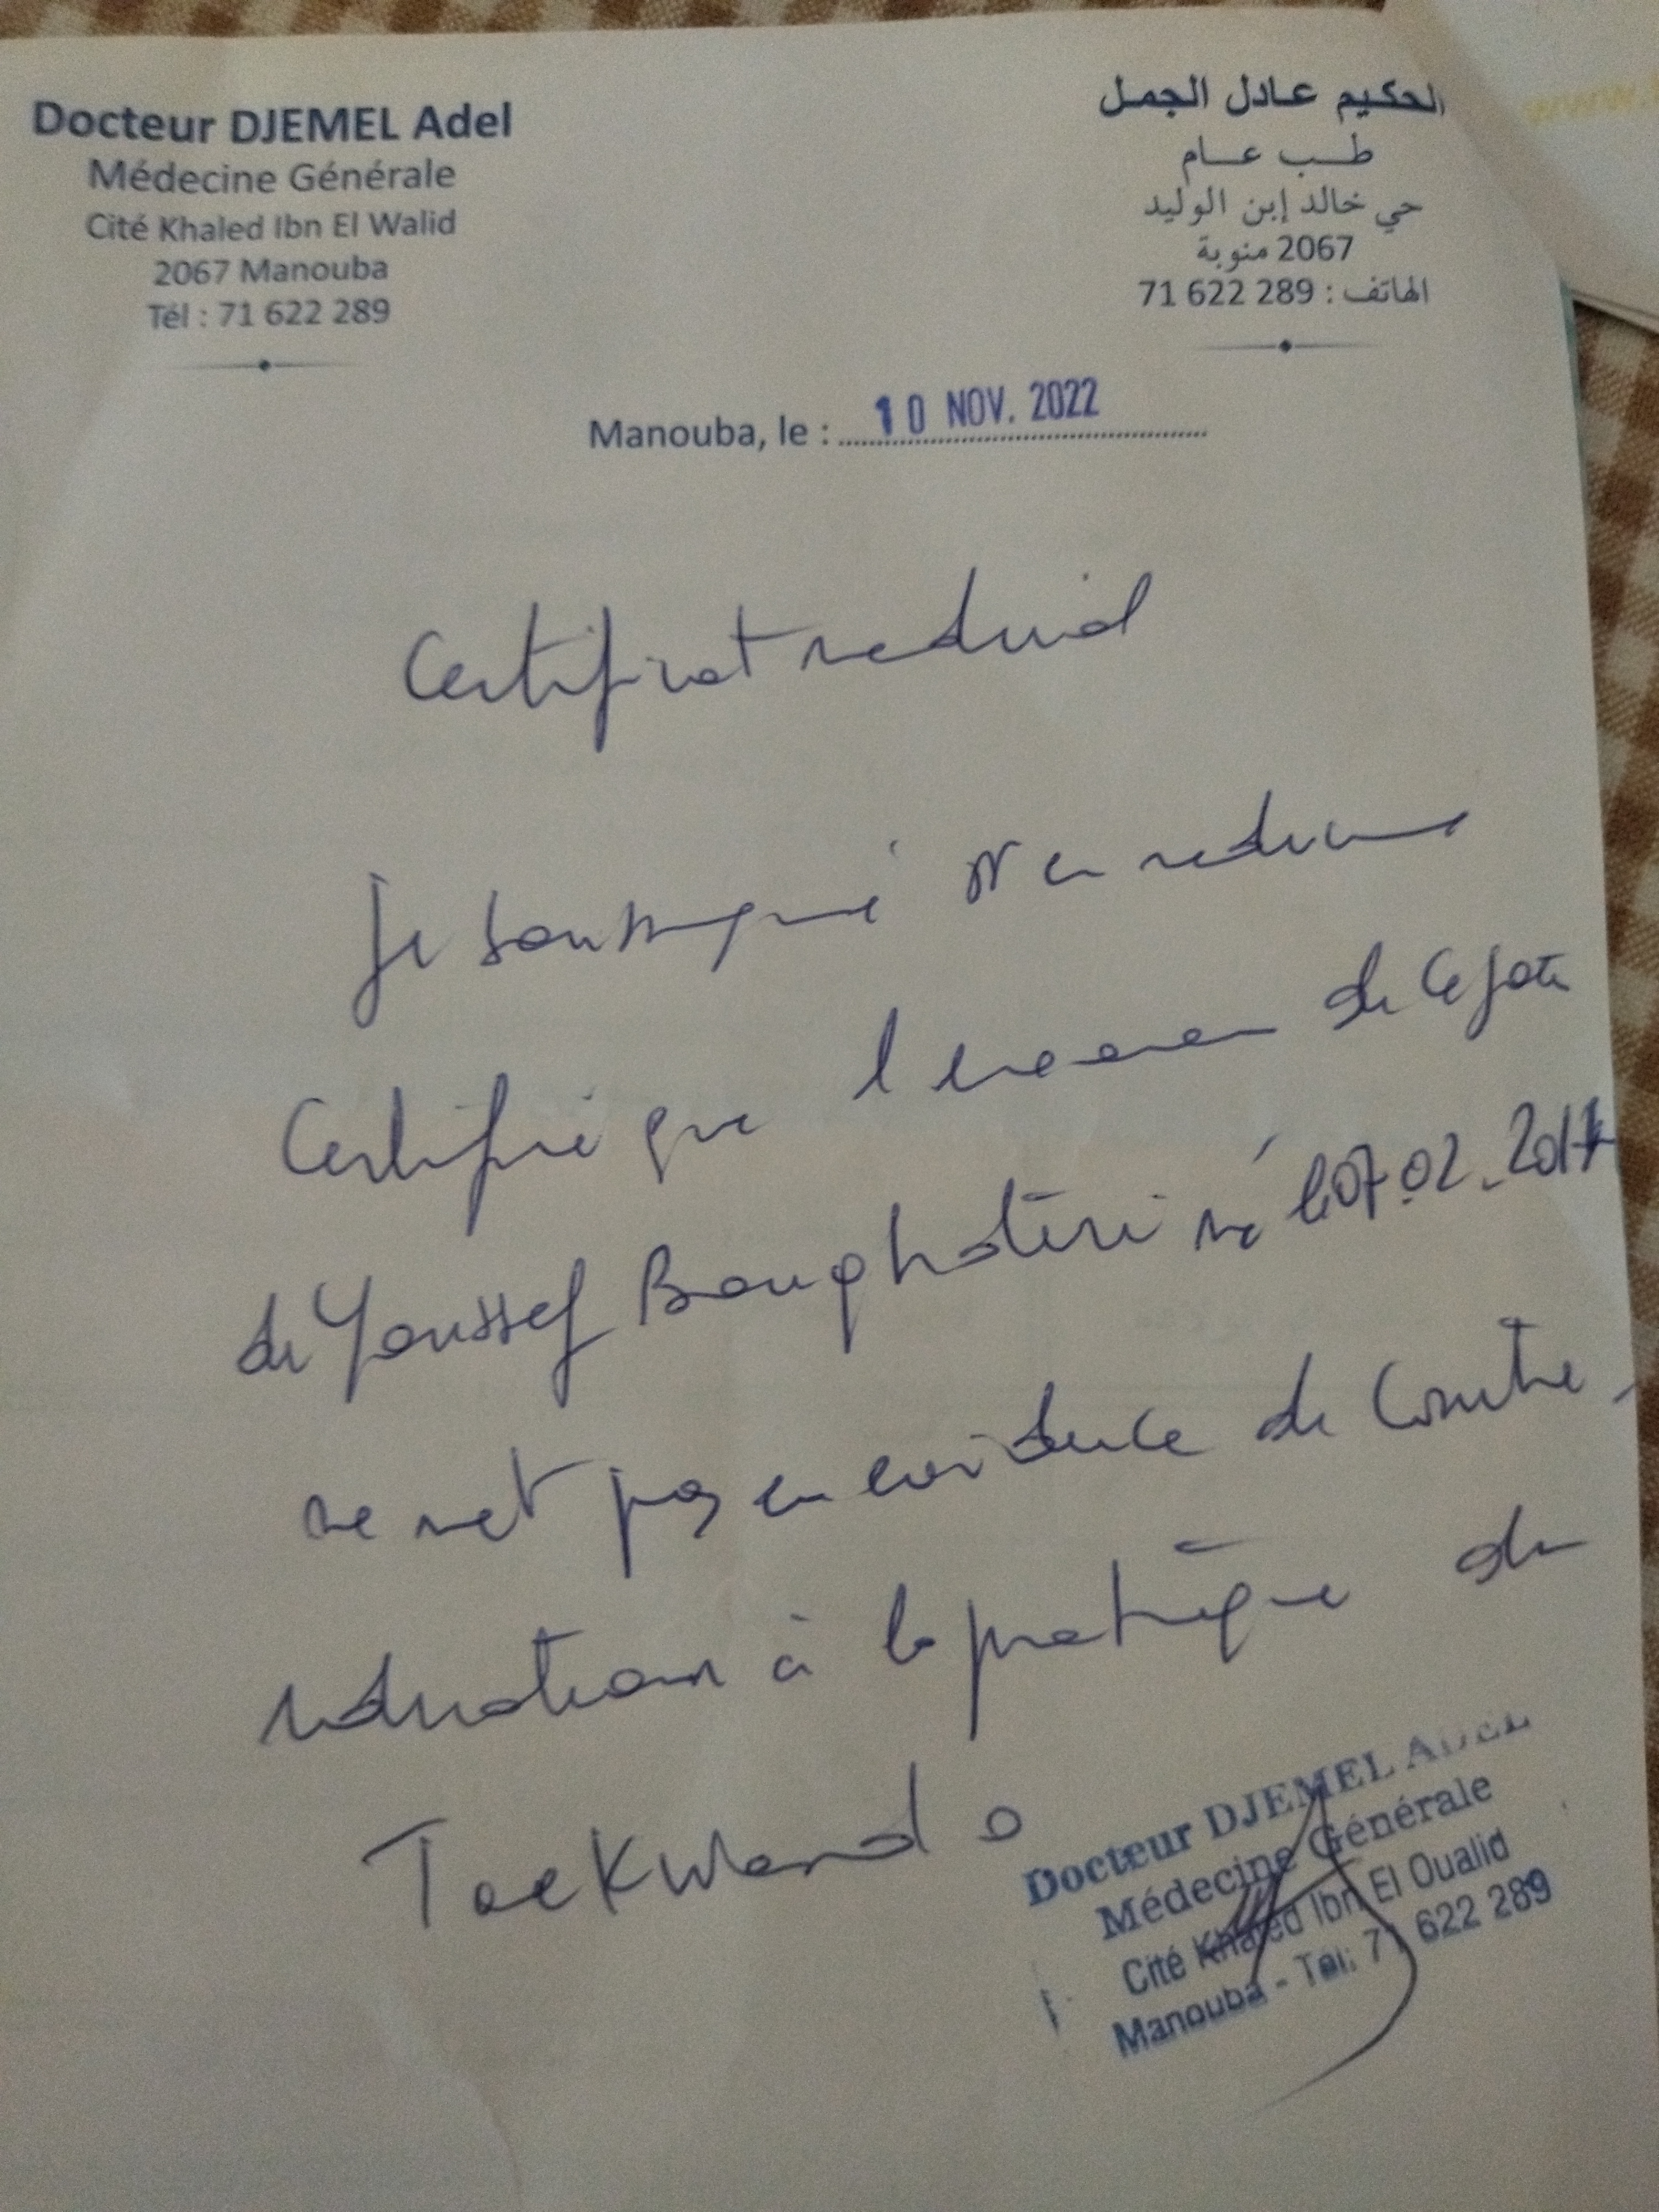 Docteur DJEMEL Adel
Médecine Générale
Cité Khaled Ibn El Walid
2067 Manouba
Tél : 71 622 289
الحكيم عادل الجمل
طب عام
حي خالد إبن الوليد
2067 منوبة
الهاتف : 289 622 71
Manouba, le : 10 NOV. 2022
Certificat medical
Je soussigné Dr en medecine
Certifie que l'examen de ce jour
de Youssef Boughatini né le 07.02.2017
ne met pas en evidence de Contre-
indication à la pratique du
TaeKwando
Docteur DJEMEL ADEL
Médecine Générale
Cité Khaled Ibn El Oualid
Manouba - Tel: 71 622 289